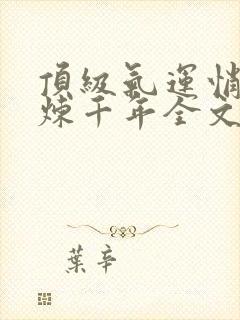 頂級氣運悄
煉千年全文
葉辛